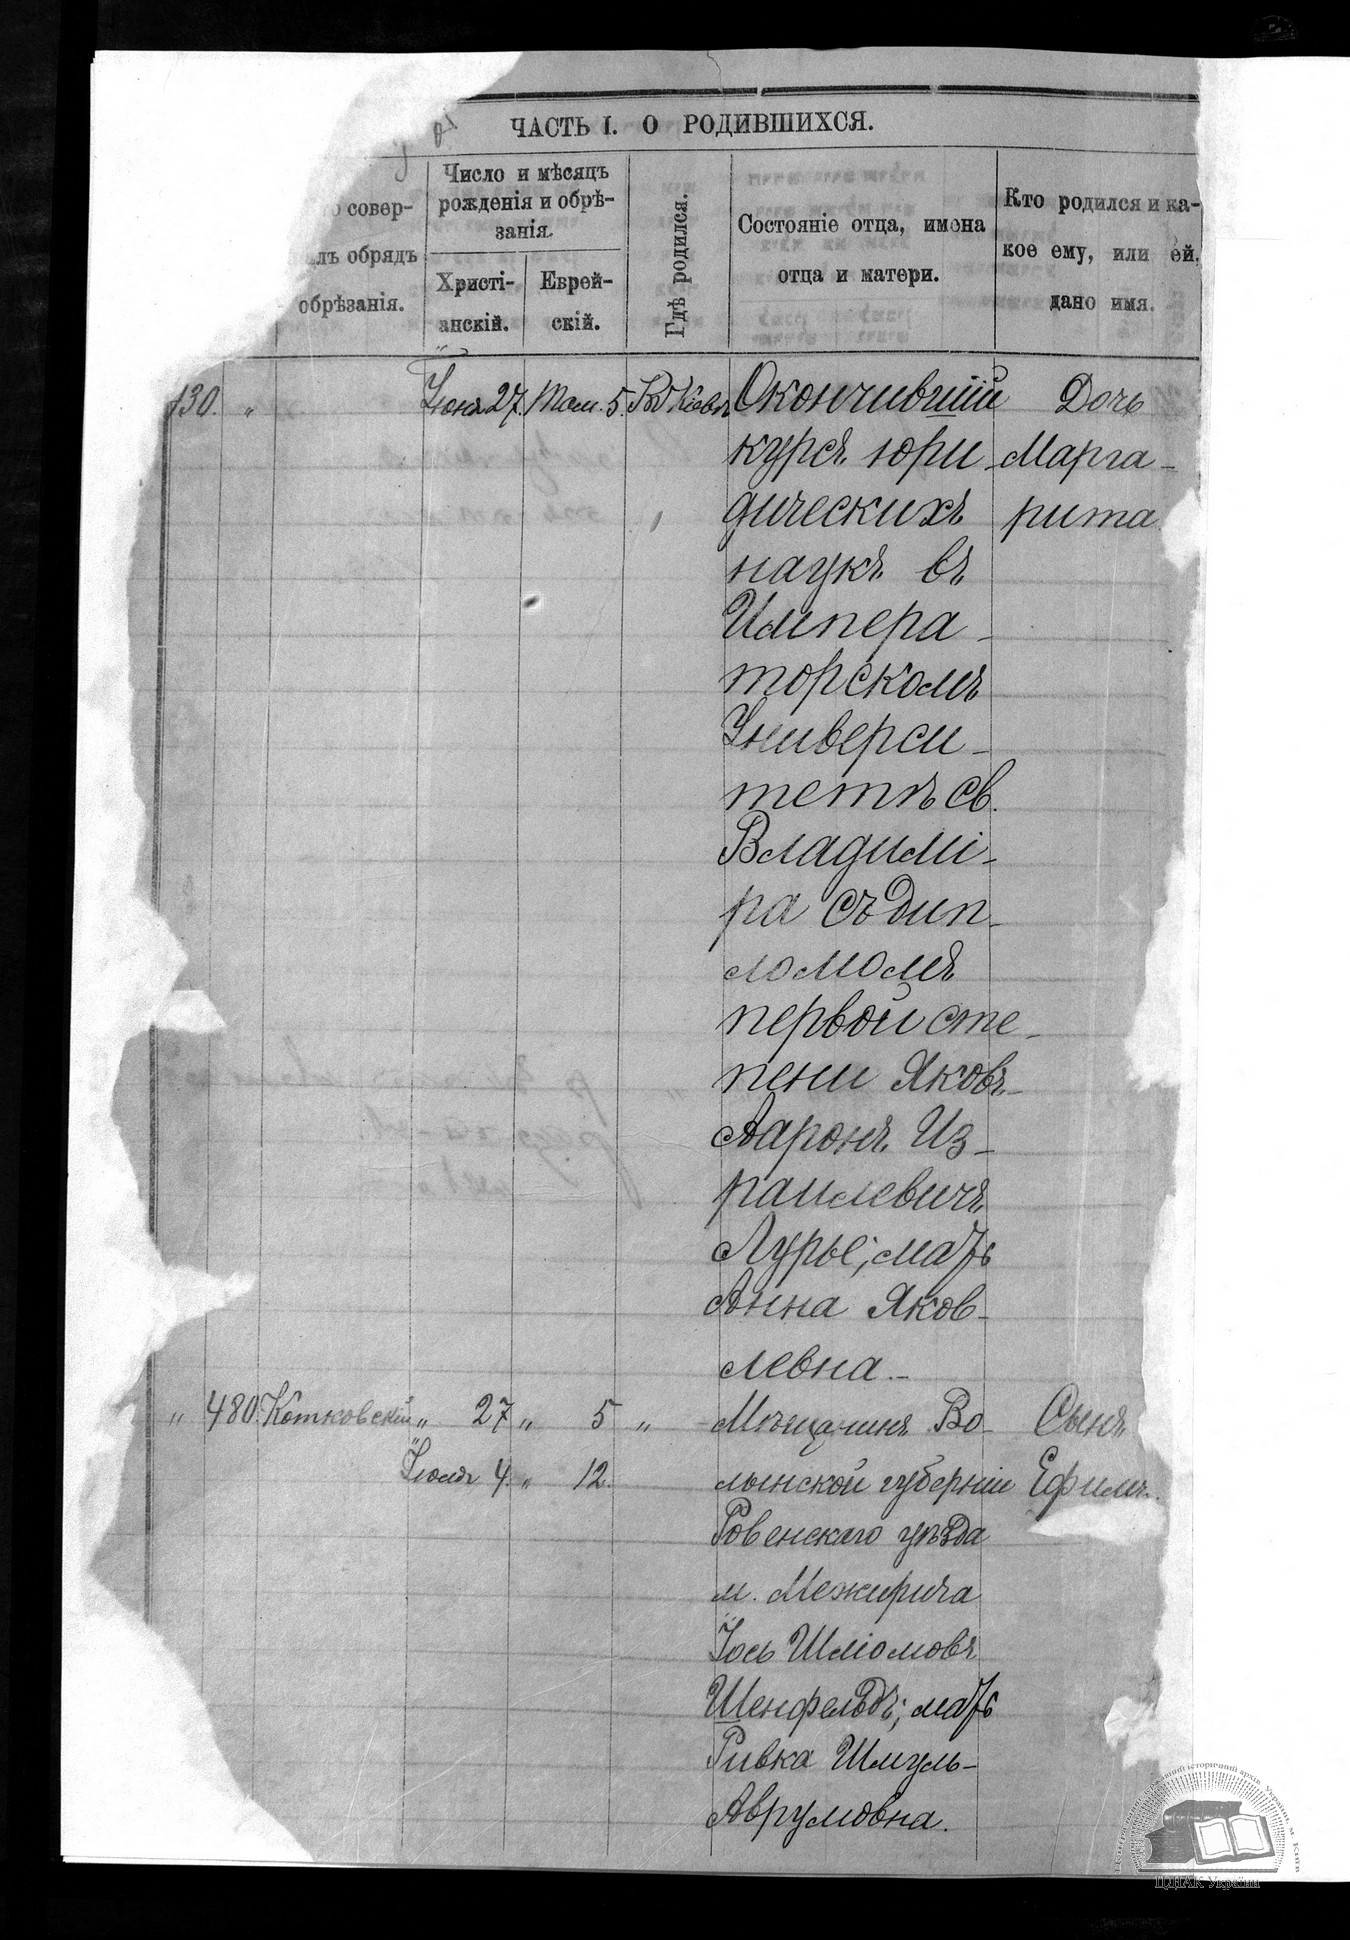 ЧАСТЬ I. О РОДИВШИХСЯ.
о совер-
лъ обрядъ
обрѣзанія.
Число и мѣсяцъ
рожденія и обрѣ-
занія.
Христі-
анскій.
Еврей-
скій.
Гдѣ родился.
Состояніе отца, имена
отца и матери.
Кто родился и ка-
кое ему, или ей,
дано имя.
130. " Іюня 27. Там. 5. Въ Кіевѣ Окончившій Дочь
курсъ юри- Марга-
дическихъ рита
наукъ въ
Импера-
торскомъ
Универси-
тетѣ св.
Владимі-
ра съ дип-
ломомъ
первой сте-
пени Яковъ-
Ааронъ Из-
раилевичъ
Лурье; мать
Анна Яков-
левна.-
" 480. Котковскій " 27 " 5 " Мѣщанинъ Во- Сынъ
Іюля 4. " 12. лынской губерніи Ефимъ.
Ровенскаго уѣзда
м. Межирича
Іось Шліомовъ
Шенфельдъ; мать
Ривка Шмуль-
Аврумовна.
ЦДІАК України